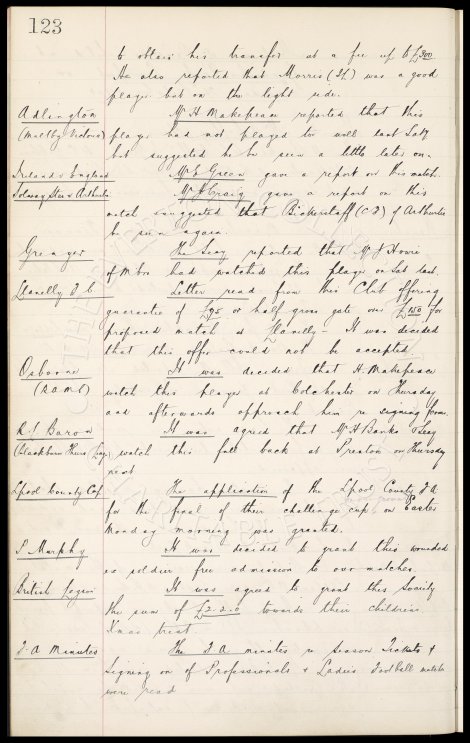 123
to obtain his transfer at a fee of £300.
He also reported that Morris (I.L) was a good
player but on the light side.
Adlington
Mr H Makepeace reported that this
(Maltby Victoria)
player had not played too well last Satdy
but suggested he be seen a little later on.
Ireland v England
Mr E Green gave a report on this match.
Solway Star v Arthurlie
Mr J Craig gave a report on this
match suggested that Bickerstaff (C.F) of Arthurlie
be seen again.
The Secy reported that Mr J Howie
of M'bro had watched this player on Sat last.
Llanelly F C
Letter read from this Club offering
guarantee of £75 or half gross gate over £150 for
proposed match at Llanelly - It was decided
that this offer could not be accepted.
Osborne
It was decided that H. Makepeace
(R.A.M.C)
watch this player at Colchester on Thursday
and afterwards approach him re signing form
R.S. Baron
It was agreed that Mr H Banks & Secy
(Blackburn Thurs. Lge)
watch this full back at Preston on Thursday
next
Lpool County Cup
The application of the Lpool County F.A
for the final of their challenge cup on Easter
Monday morning was granted.
P Murphy
It was decided to grant this wounded
ex soldier free admission to our matches.
British Legion
It was agreed to grant this Society
the sum of £2-2-0 towards their childrens
Xmas treat.
F-A Minutes
The F A minutes re Season Tickets &
Signing on of Professionals & Ladies Football matches
were read